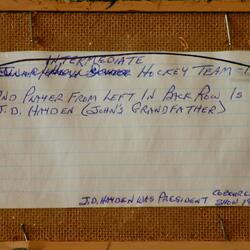 INTERMEDIATE
HOCKEY TEAM
2ND PLAYER FROM LEFT IN BACK ROW IS
J.D. HAYDEN (JOHN'S GRANDFATHER)
J.D. HAYDEN WAS PRESIDENT
SHOW 19